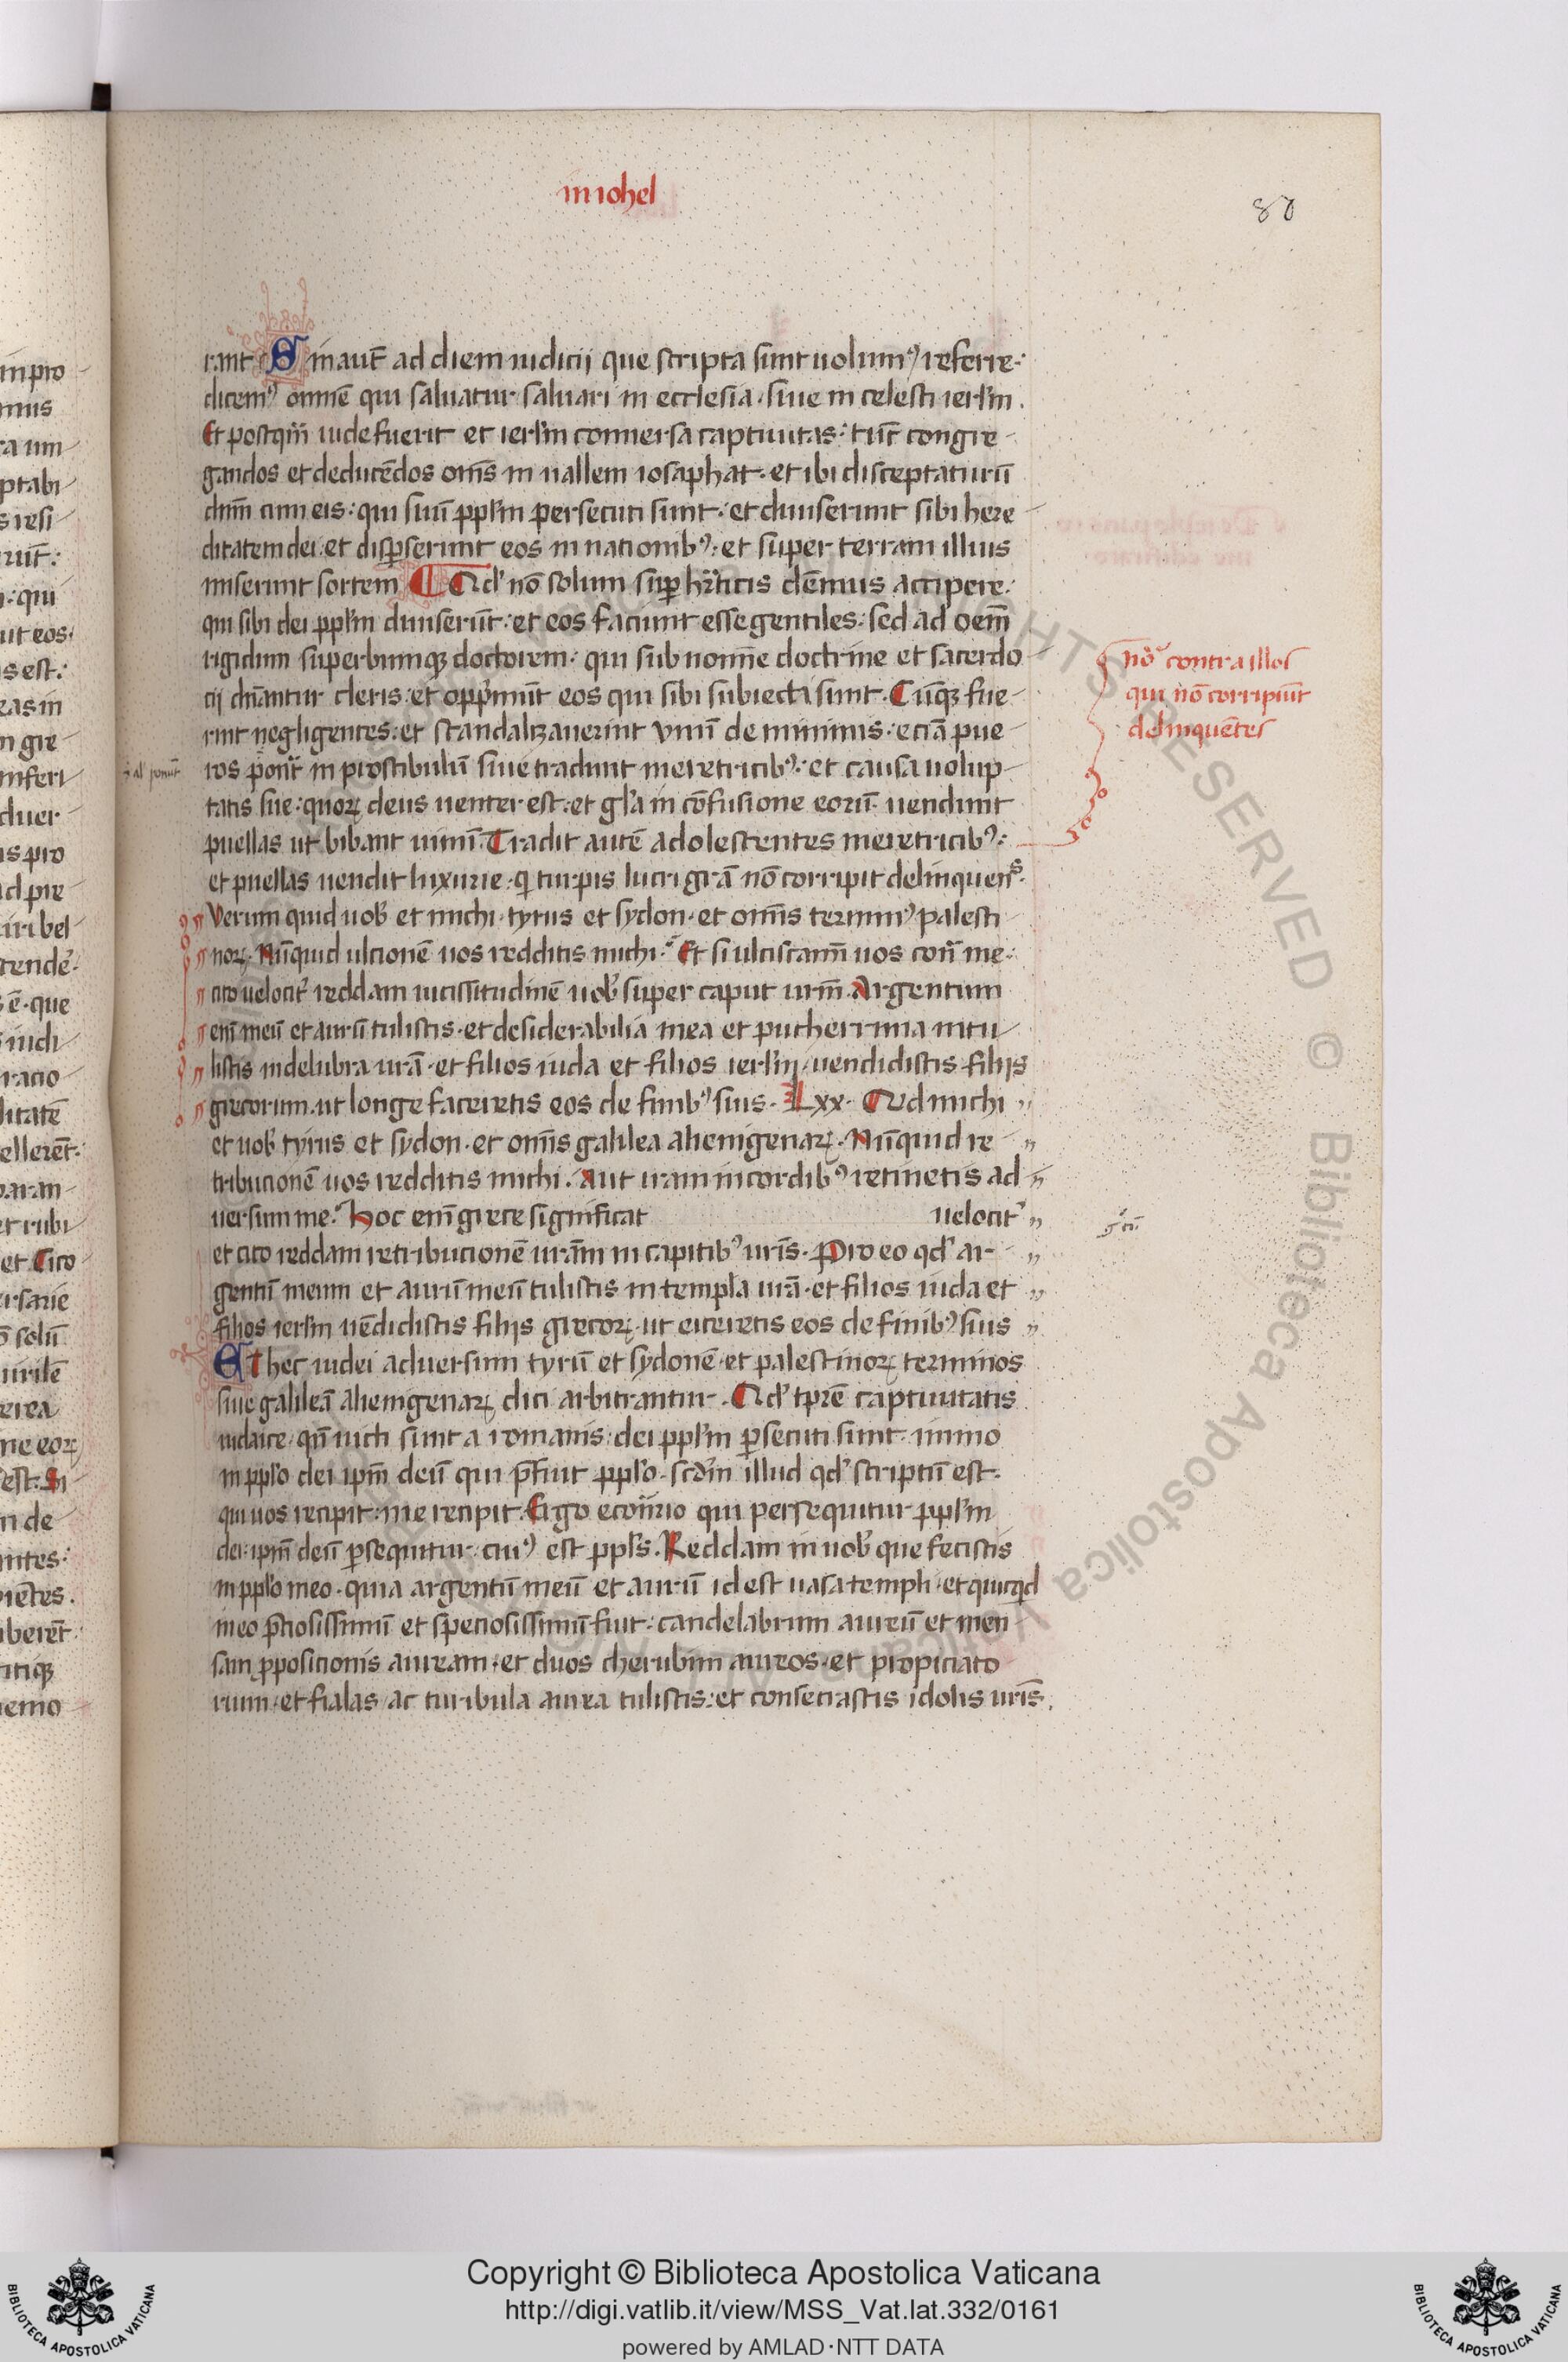 in iohel
80
rint. Sin aut̄ ad diem iudicij que scripta sunt uolumꝰ referre:
dicemꝰ omnē qui saluatur saluari in ecclesia. siue in celesti ierłm.
Et postq̄m iude fuerit et ierłm conuersa captiuitas: tūc congre
gandos et deducēdos om̄s in uallem iosaphat. et ibi disceptaturū
dn̄m cum eis: qui suū ppłm persecuti sunt: et diuiserunt sibi here
ditatem dei: et disꝑserunt eos in nationibꝰ: et super terram illius
miserunt sortem. Qd' nō solum suꝑ hr̄ticis dēmus accipere:
qui sibi dei ppłm diuiserūt: et eos faciunt esse gentiles: sed ad oem̄
rigidum superbumqꝫ doctorem: qui sub nomīe doctrine et sacerdo
cij dn̄antur cleris: et opp̄mūt eos qui sibi subiecti sunt. Cūqꝫ fue
rint negligentes: et scandalizauerint vnū de minimis: eciā pue
ros ponūt in prostibulū siue tradunt meretricibꝰ: et causa uolup
tatis sue: quoꝝ deus uenter est: et gła in cōfusione eorū. uendunt
puellas ut bibant uinū. Tradit autē adolescentes meretricibꝰ:
et puellas uendit luxurie. qi turpis lucri gr̄a nō corripit delinquens.
Verum quid uob' et michi. tyrus et sydon. et om̄is terminꝰ palesti
noꝝ. Nūquid ulcionē uos redditis michi: Et si ulciscamī uos con̄ me:
cito uelocit' reddam uicissitudinē uob' super caput ur̄m. Argentum
eni̅ meū et aurū tulistis. et desiderabilia mea et pucherrima intu
listis in delubra ur̄a. et filios iuda et filios ierłm uendidistis filijs
grecorum. ut longe faceretis eos de finibꝰ suis. Lxx. Qd michi
et uob' tyrus et sydon. et om̄is galilea alienigenaꝝ. Nūquid re
tribucionē uos redditis michi. Aut iram in cordibꝰ retinetis ad
uersum me: Hoc eni̅ grece significat uelocit'
et cito reddam retribucionē ur̄am in capitibꝰ ur̄is. Pro eo qd' ar
gentū meum et aurū meū tulistis in templa ur̄a. et filios iuda et
filios ierłm uēdidistis filijs grecoꝝ. ut eiceretis eos de finibꝰ suis
Et hec iudei aduersum tyrū et sydonē. et palestinoꝝ terminos
siue galileā alienigenaꝝ dici arbitrantur. Qd' tp̄re captiuitatis
iudaice. qn̄ uicti sunt a romanis: dei ppłm ꝑsecuti sunt. immo
in ppło dei ipm̄ deū qui p̄fuit ppło. scd'm illud qd' scriptū est.
qui uos recipit: me recipit. Ergo econ̄rio qui persequitur ppłm
dei: ipm̄ deū ꝑsequitur: cuiꝰ est ppłs. Reddam in uob' que fecistis
in ppło meo. quia argentū meū et aurū id est uasa templi. et quicqd
meo p̄tiosissimū et speciosissimū fuit: candelabrum aureū et men
sam ꝓposicionis auream. et duos cherubim aureos. et propiciato
rium. et fialas ac turibula aurea tulistis: et consecrastis idolis ur̄is.
nō contra illos
qui nō corripiūt
delinquētes
Copyright © Biblioteca Apostolica Vaticana
http://digi.vatlib.it/view/MSS_Vat.lat.332/0161
powered by AMLAD·NTT DATA
BIBLIOTECA APOSTOLICA VATICANA
BIBLIOTECA APOSTOLICA VATICANA